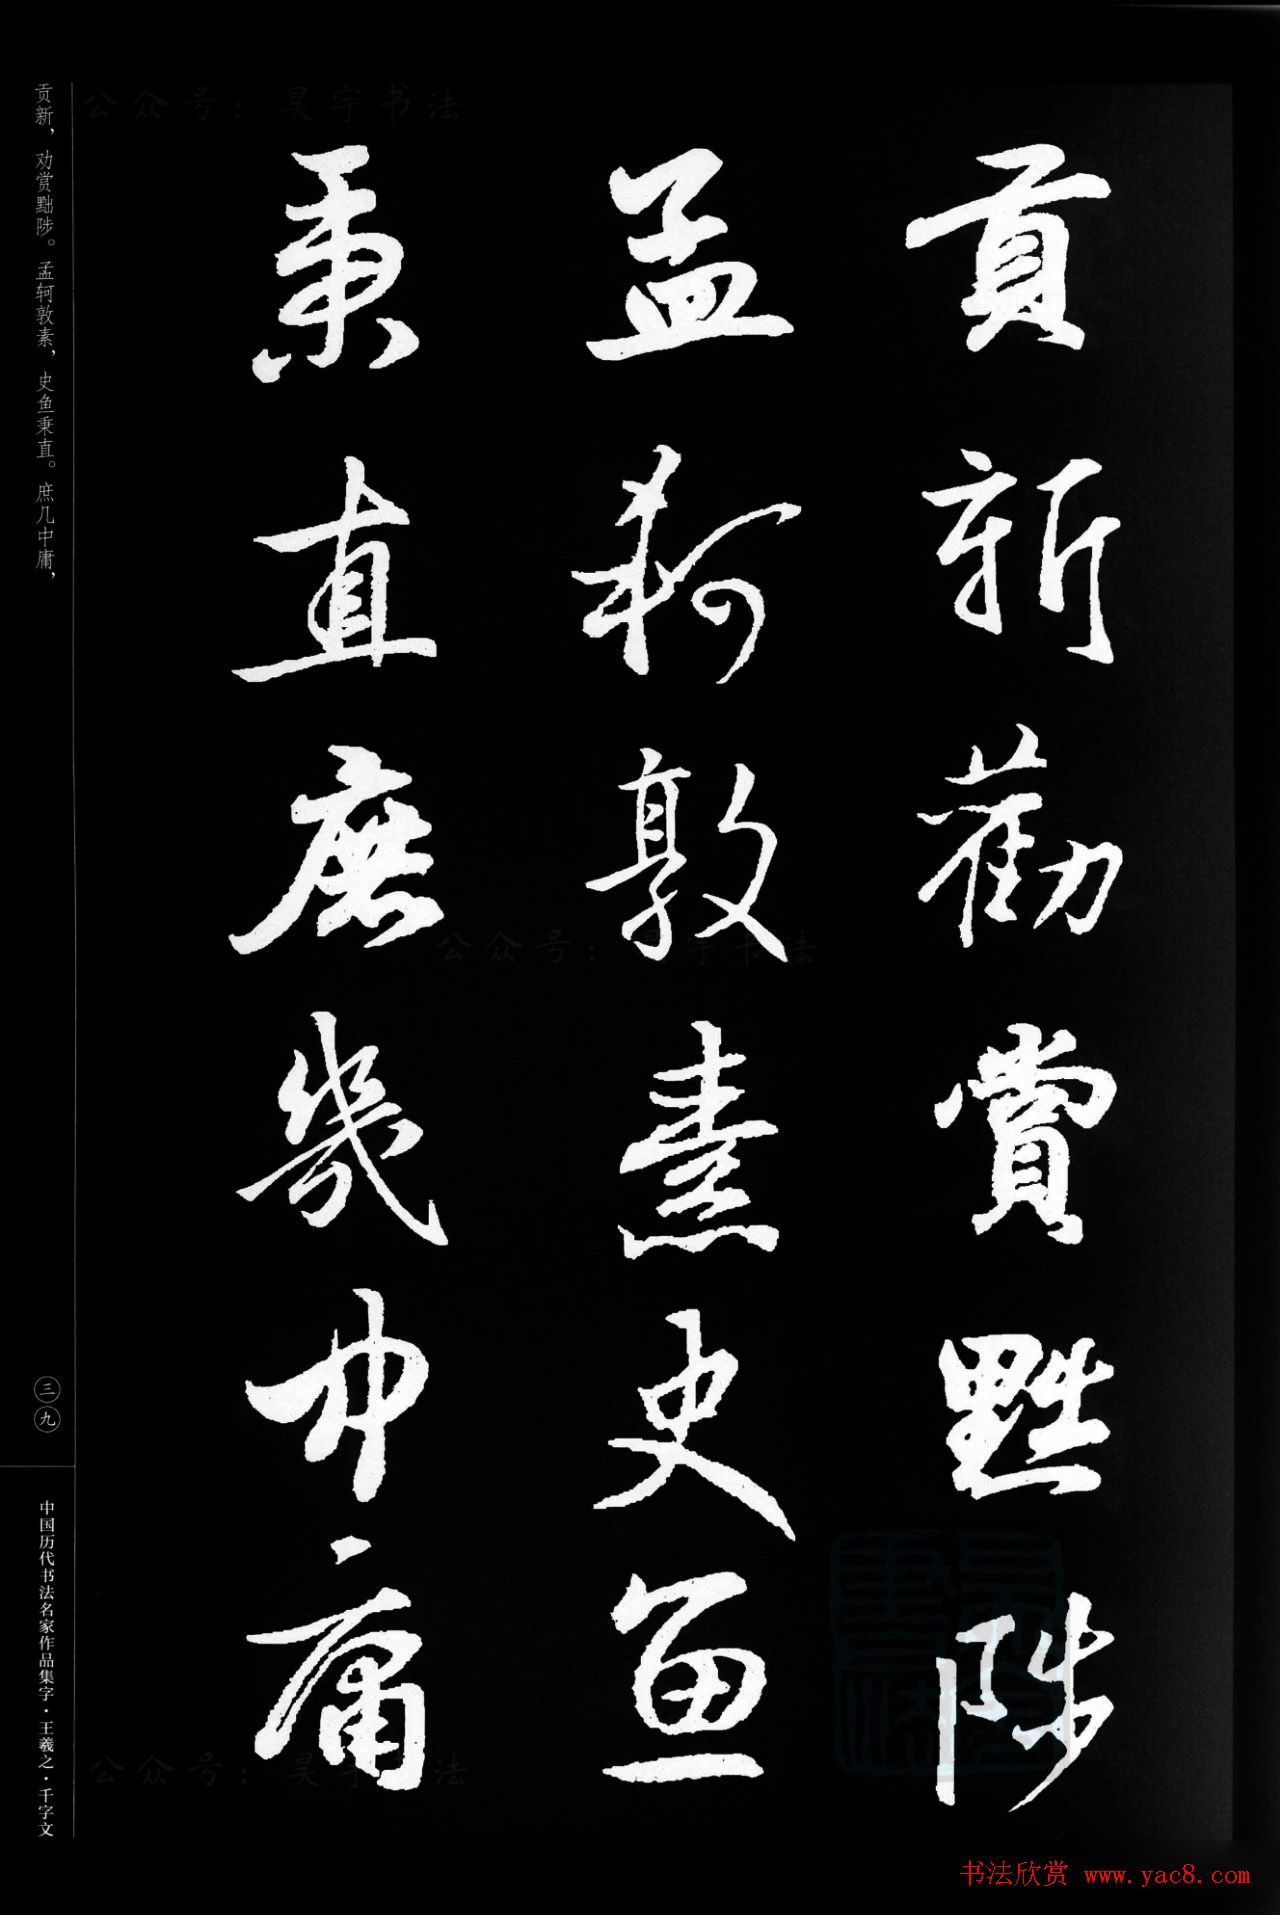 貢新勸賞黜陟
孟軻敦素史魚
秉直庶幾中庸
贡新，劝赏黜陟。孟轲敦素，史鱼秉直。庶几中庸，
三九
中国历代书法名家作品集字·王羲之·千字文
公众号：昊宇书法
公众号：昊宇书法
公众号：昊宇书法
书法欣赏 www.yac8.com